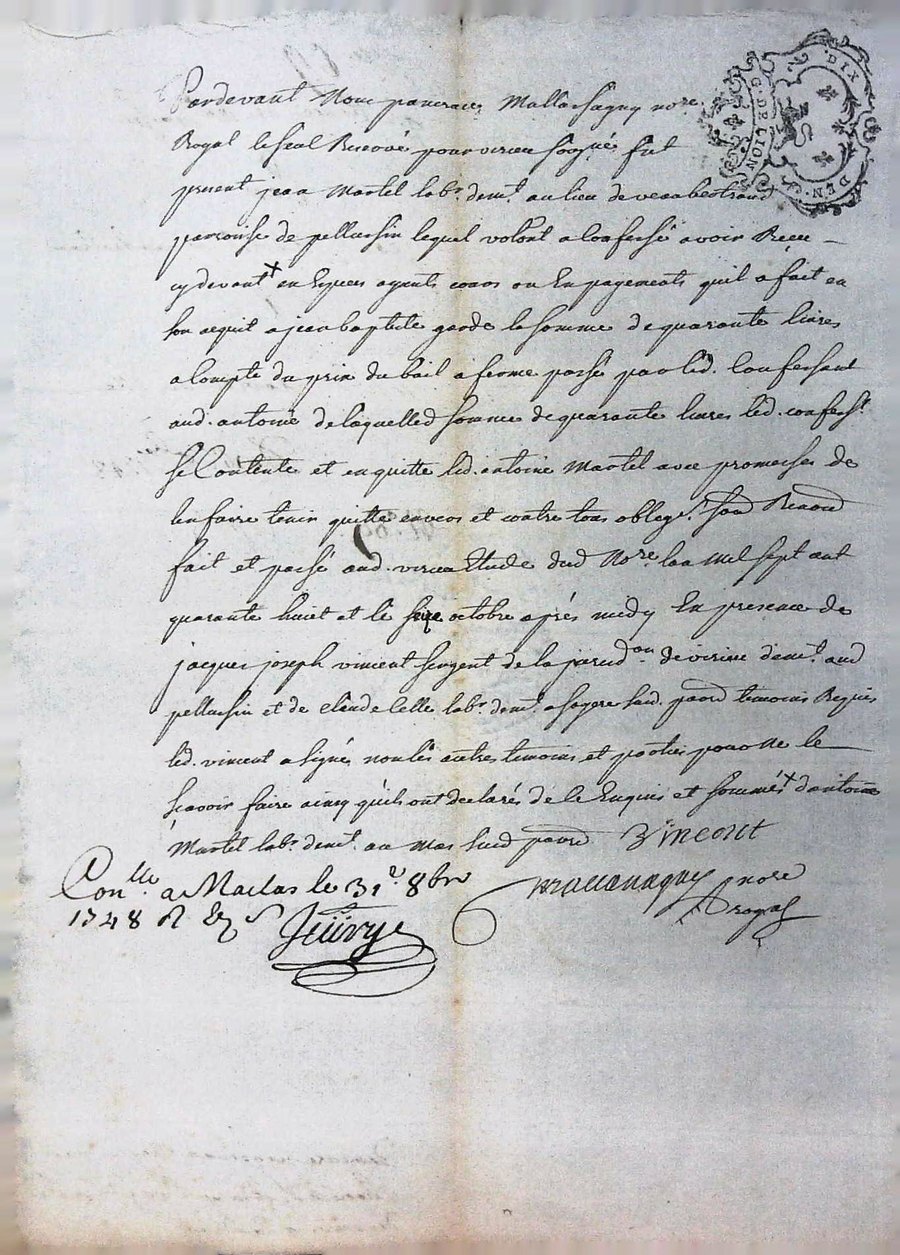 G. DE LION DIX DEN.
Pardevant Nous pancrace Mallassagny no.re
Royal le seul Reservé pour virieu soigné fut
present jean Martel lab.r dem.t au lieu de
parroisse de pellussin lequel volont a confessé avoir Reçeu
cy devant x en Especes agents cours ou En payements qu'il a fait en
son acquit a jean baptiste garde la somme de quarante livres
a Compte du prix du bail a ferme passé par led. Confessant
aud. antoine de laquelle d somme de quarante livres led. confess.t
se Contente et en quitte led. antoine Martel avec promesses de
l'en faire tenir quitte envers et contre tous oblig.
fait et passé aud. virieu Etude dud No.re l'an Mil sept cent
quarante huict et le seize octobre après midy En presence de
jacques joseph vincent sergent de la jurid.on de virieu dem.t aud
pellussin et de Claude Celle lab.r dem.t a sagere sud. parr temoins Requis
led. vincent a signé non les autres temoins et parties pour ne le
sçavoir faire ainsy qu'ils ont declarés de ce Enquis et sommés x d'antoine
Martel lab.r dem.t au Mas sud parr Vincent
Con.lle a Maclas le 31.e 8bre mallassagny nore
1748 royal